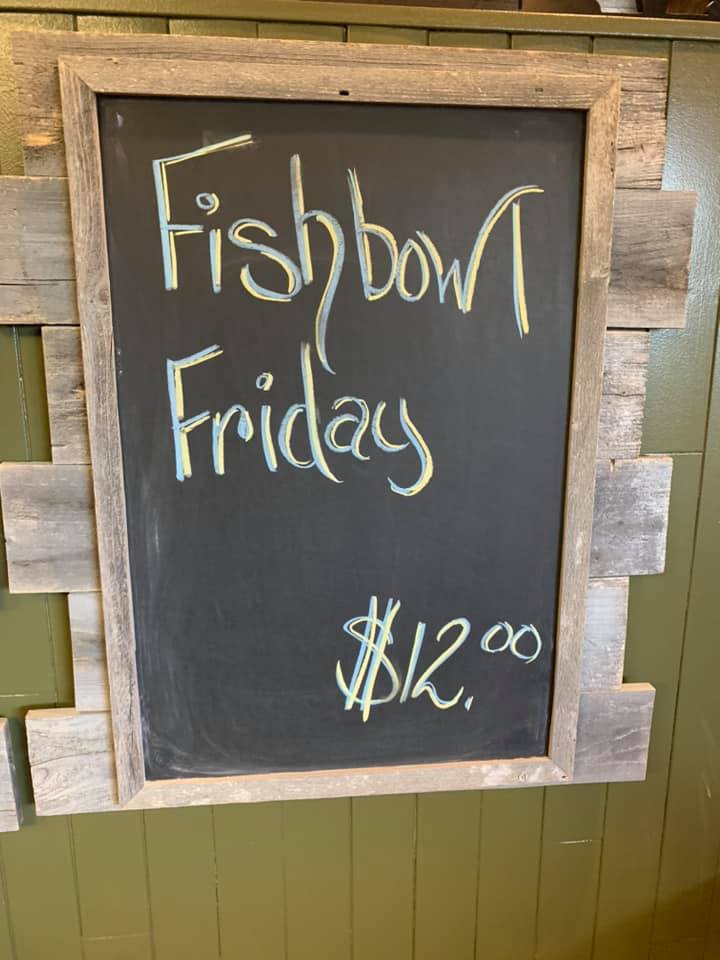 Fishbowl
Friday
$12.00